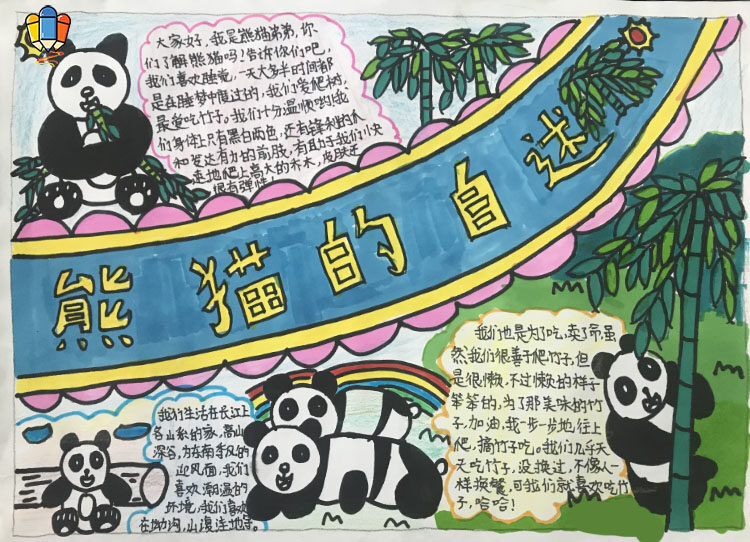 大家好，我是熊猫弟弟，你
们了解熊猫吗？告诉你们吧，
我们喜欢睡觉，一天大多半时间都
是在睡梦中度过的，我们爱爬树，
最爱吃竹子，我们十分温顺的我
们身体上只有黑白两色，还有锋利的爪
和发达有力的前肢，有助于我们快
速地爬上高大的树木，皮肤还
很有弹性
熊猫的自述
我们生活在长江上
各山系的家，高山
深谷，为东南季风的
迎风面，我们
喜欢潮湿的
环境，我们喜欢
在坳沟，山凌洼地等。
我们也是为了吃，卖了命，虽
然我们很善于爬竹子，但
是很懒，不过懒的样子
笨笨的，为了那美味的竹
子，加油，我一步一步地往上
爬，摘竹子吃。我们几乎天
天吃竹子，没换过，不像人一
样换餐，可我们就喜欢吃竹
子，哈哈！